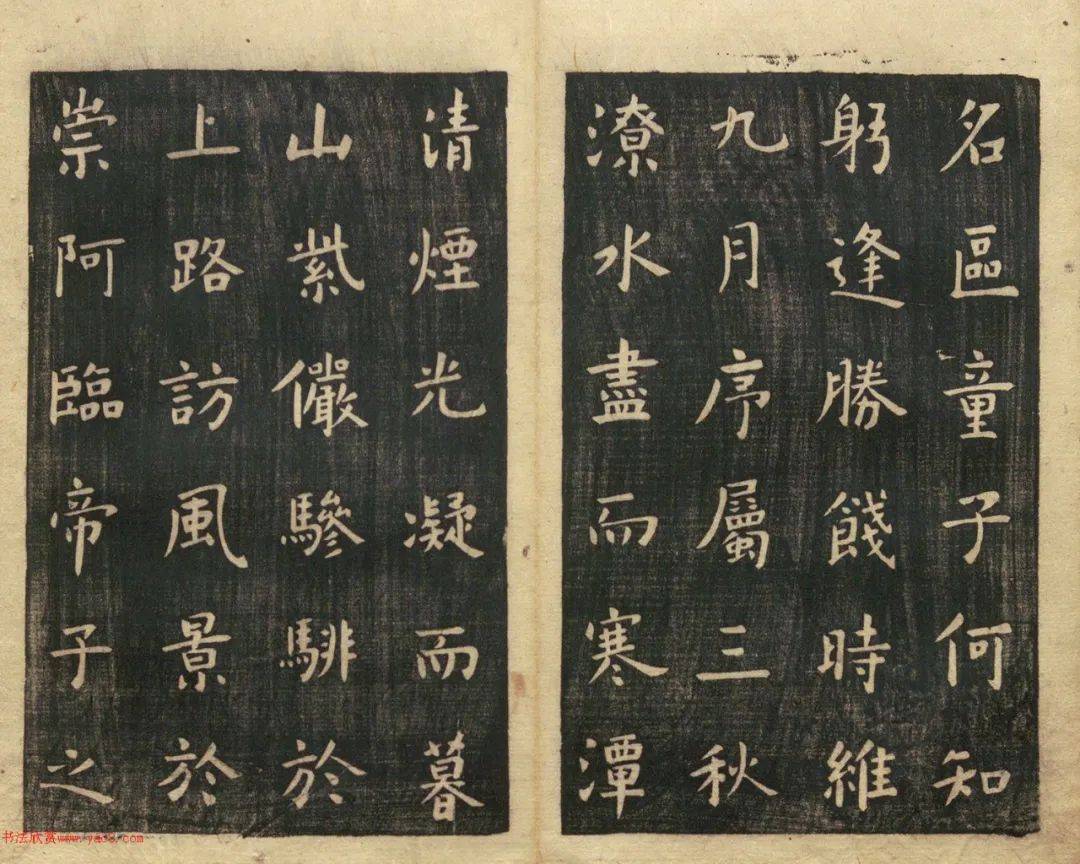 名區童子何知
躬逢勝餞時維
九月序屬三秋
潦水盡而寒潭
清煙光凝而暮
山紫儼驂騑於
上路訪風景於
崇阿臨帝子之
书法欣赏www.yac8.com